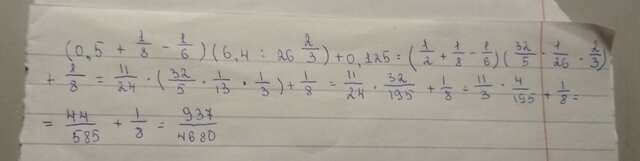 (0,5 + 1/8 - 1/6) (6,4 : 26 2/3) + 0,125 = (1/2 + 1/8 - 1/6) (32/5 · 1/26 · 2/3)
+ 1/8 = 11/24 · (32/5 · 1/13 · 1/3) + 1/8 = 11/24 · 32/195 + 1/8 = 11/3 · 4/195 + 1/8 =
= 44/585 + 1/8 = 937/4680